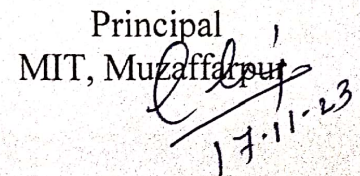 Principal
MIT, Muzaffarpur
17-11-23